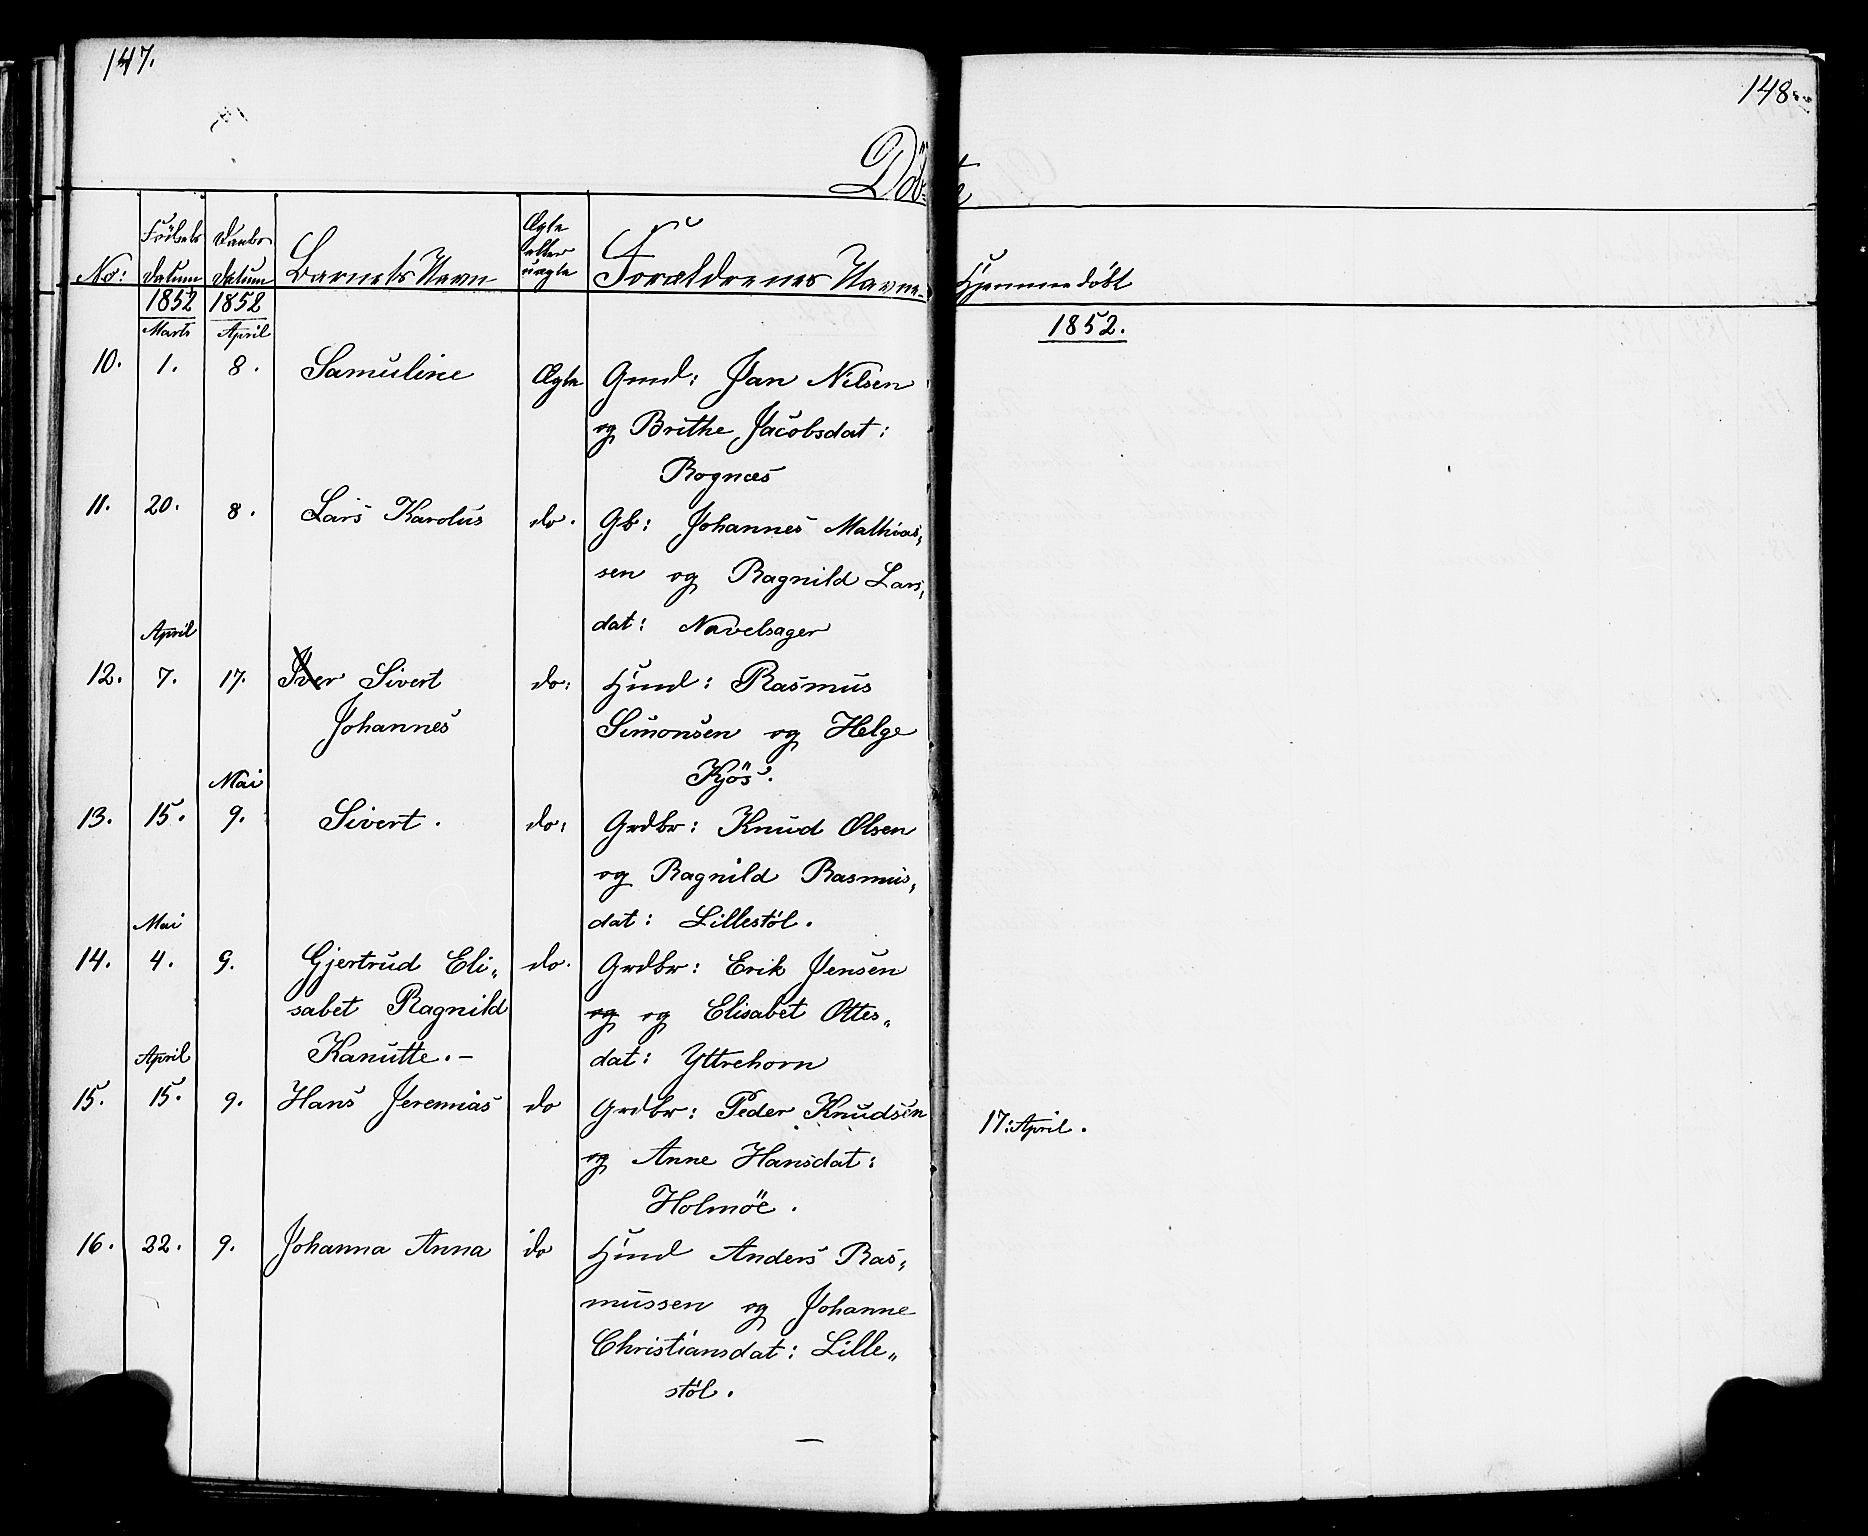 147.
148.
Döb-
te
No: Födsels Datum Daabs Datum Barnets Navn Ægte eller uægte Forældrenes Navne Hjemmedöbt
1852 1852 1852.
Marts April
10. 1. 8. Samuline Ægte Gmd: Jan Nilsen
og Brithe Jacobsdat:
Rognæs
11. 20. 8. Lars Karolus do. Gb: Johannes Mathias„
sen og Ragnild Lars„
dat: Navelsager
April
12. 7. 17. Iver Sivert do: Hmd: Rasmus
Johannes Simonsen og Helge
Kjös.
Mai
13. 15. 9. Sivert. do: Grdbr: Knud Olsen
og Ragnild Rasmus„
dat: Lillestöl.
Mai
14. 4. 9. Gjertrud Eli„ do. Grdbr: Erik Jensen
sabet Ragnild og og Elisabet Ottes„
Kanutte.- dat: Yttrehorn
April
15. 15. 9. Hans Jeremias do Grdbr: Peder Knudsen 17: April.
og Anne Hansdat:
Holmöe.
16. 22. 9. Johanna Anna do Hmd Anders Ras„
mussen og Johanne
Christiansdat: Lille„
stöl.